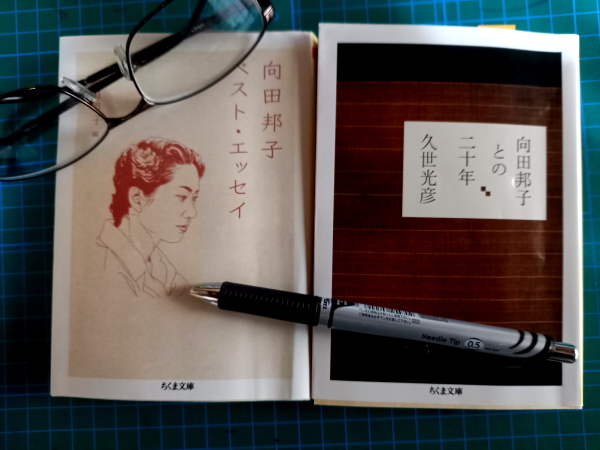 向田邦子
ベスト・エッセイ
ちくま文庫
向田邦子
との
二十年
久世光彦
ちくま文庫
Needle Tip 0.5